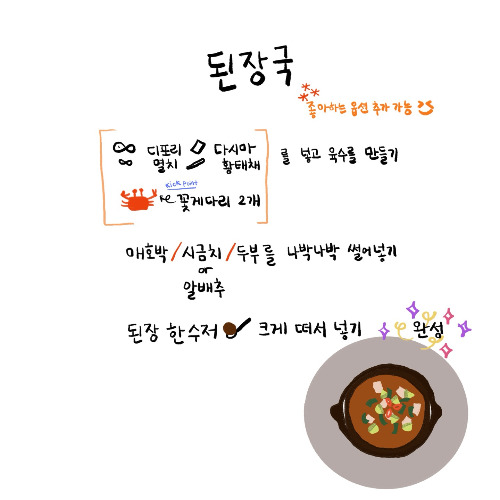 된장국
좋아하는 옵션 추가 가능
디포리 다시마
멸치 황태채
를 넣고 육수를 만들기
kick point
꽃게다리 2개
매호박/시금치/두부를 나박나박 썰어넣기
or
알배추
된장 한수저 크게 떠서 넣기
완성